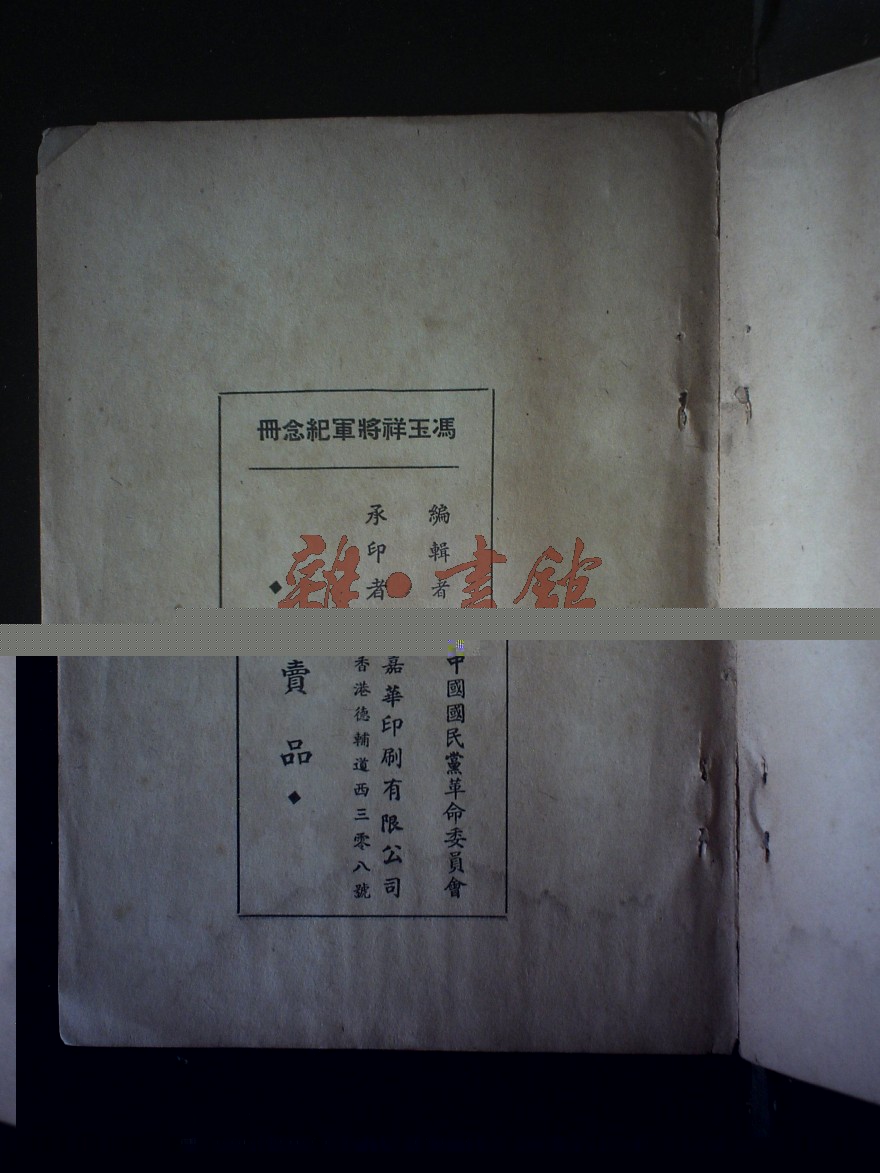 馮玉祥將軍紀念冊
編輯者
中國國民黨革命委員會
承印者
嘉華印刷有限公司
香港德輔道西三零八號
◆
賣品◆
雜·書館